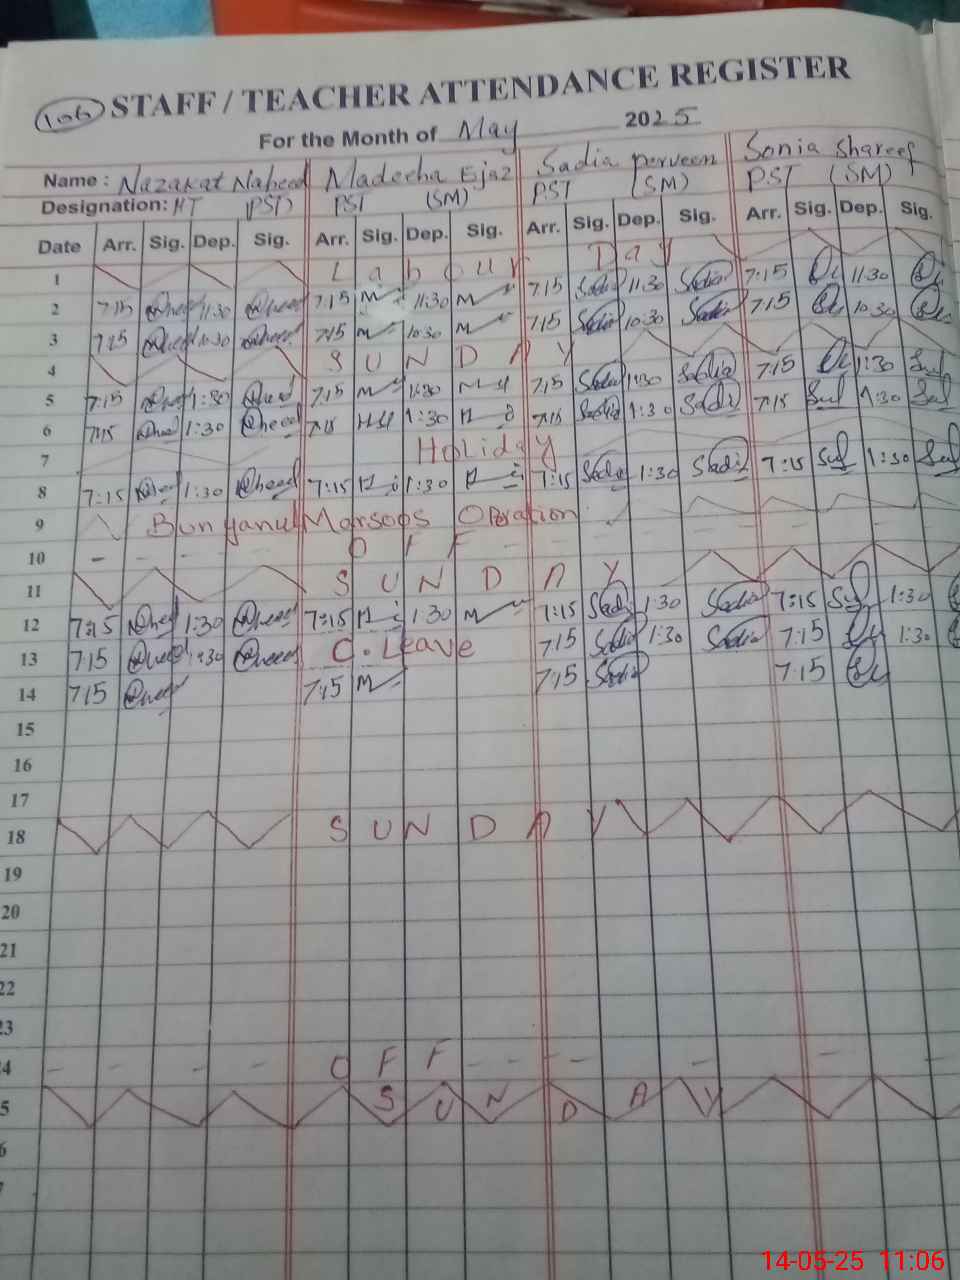 106 STAFF / TEACHER ATTENDANCE REGISTER
For the Month of May 2025
Name : Nazakat Naheed Madeeha Ejaz Sadia perveen Sonia Shareef
Designation: HT (PST) PST (SM) PST (SM) PST (SM)
Date Arr. Sig. Dep. Sig. Arr. Sig. Dep. Sig. Arr. Sig. Dep. Sig. Arr. Sig. Dep. Sig.
1 Labour Day
2 7:15 11:30 7:15 11:30 7:15 Sadia 11:30 Sadia 7:15 11:30
3 7:15 10:30 7:15 10:30 7:15 Sadia 10:30 Sadia 7:15 10:30
4 SUNDAY
5 7:15 1:30 7:15 1:30 7:15 Sadia 1:30 Sadia 7:15 1:30
6 7:15 1:30 7:15 1:30 7:15 Sadia 1:30 Sadia 7:15 1:30
7 Holiday
8 7:15 1:30 7:15 1:30 7:15 Sadia 1:30 Sadia 7:15 1:30
9 Bunyanul Marsoos Operation
10 - - - - OFF - -
11 SUNDAY
12 7:15 1:30 7:15 1:30 7:15 Sadia 1:30 Sadia 7:15 1:30
13 7:15 1:30 C.Leave 7:15 Sadia 1:30 Sadia 7:15 1:30
14 7:15 7:15 7:15 Sadia 7:15
15
16
17
18 SUNDAY
19
20
21
22
23
4 - - - - OFF - - - - - - -
5 SUNDAY
6
7
14-05-25 11:06